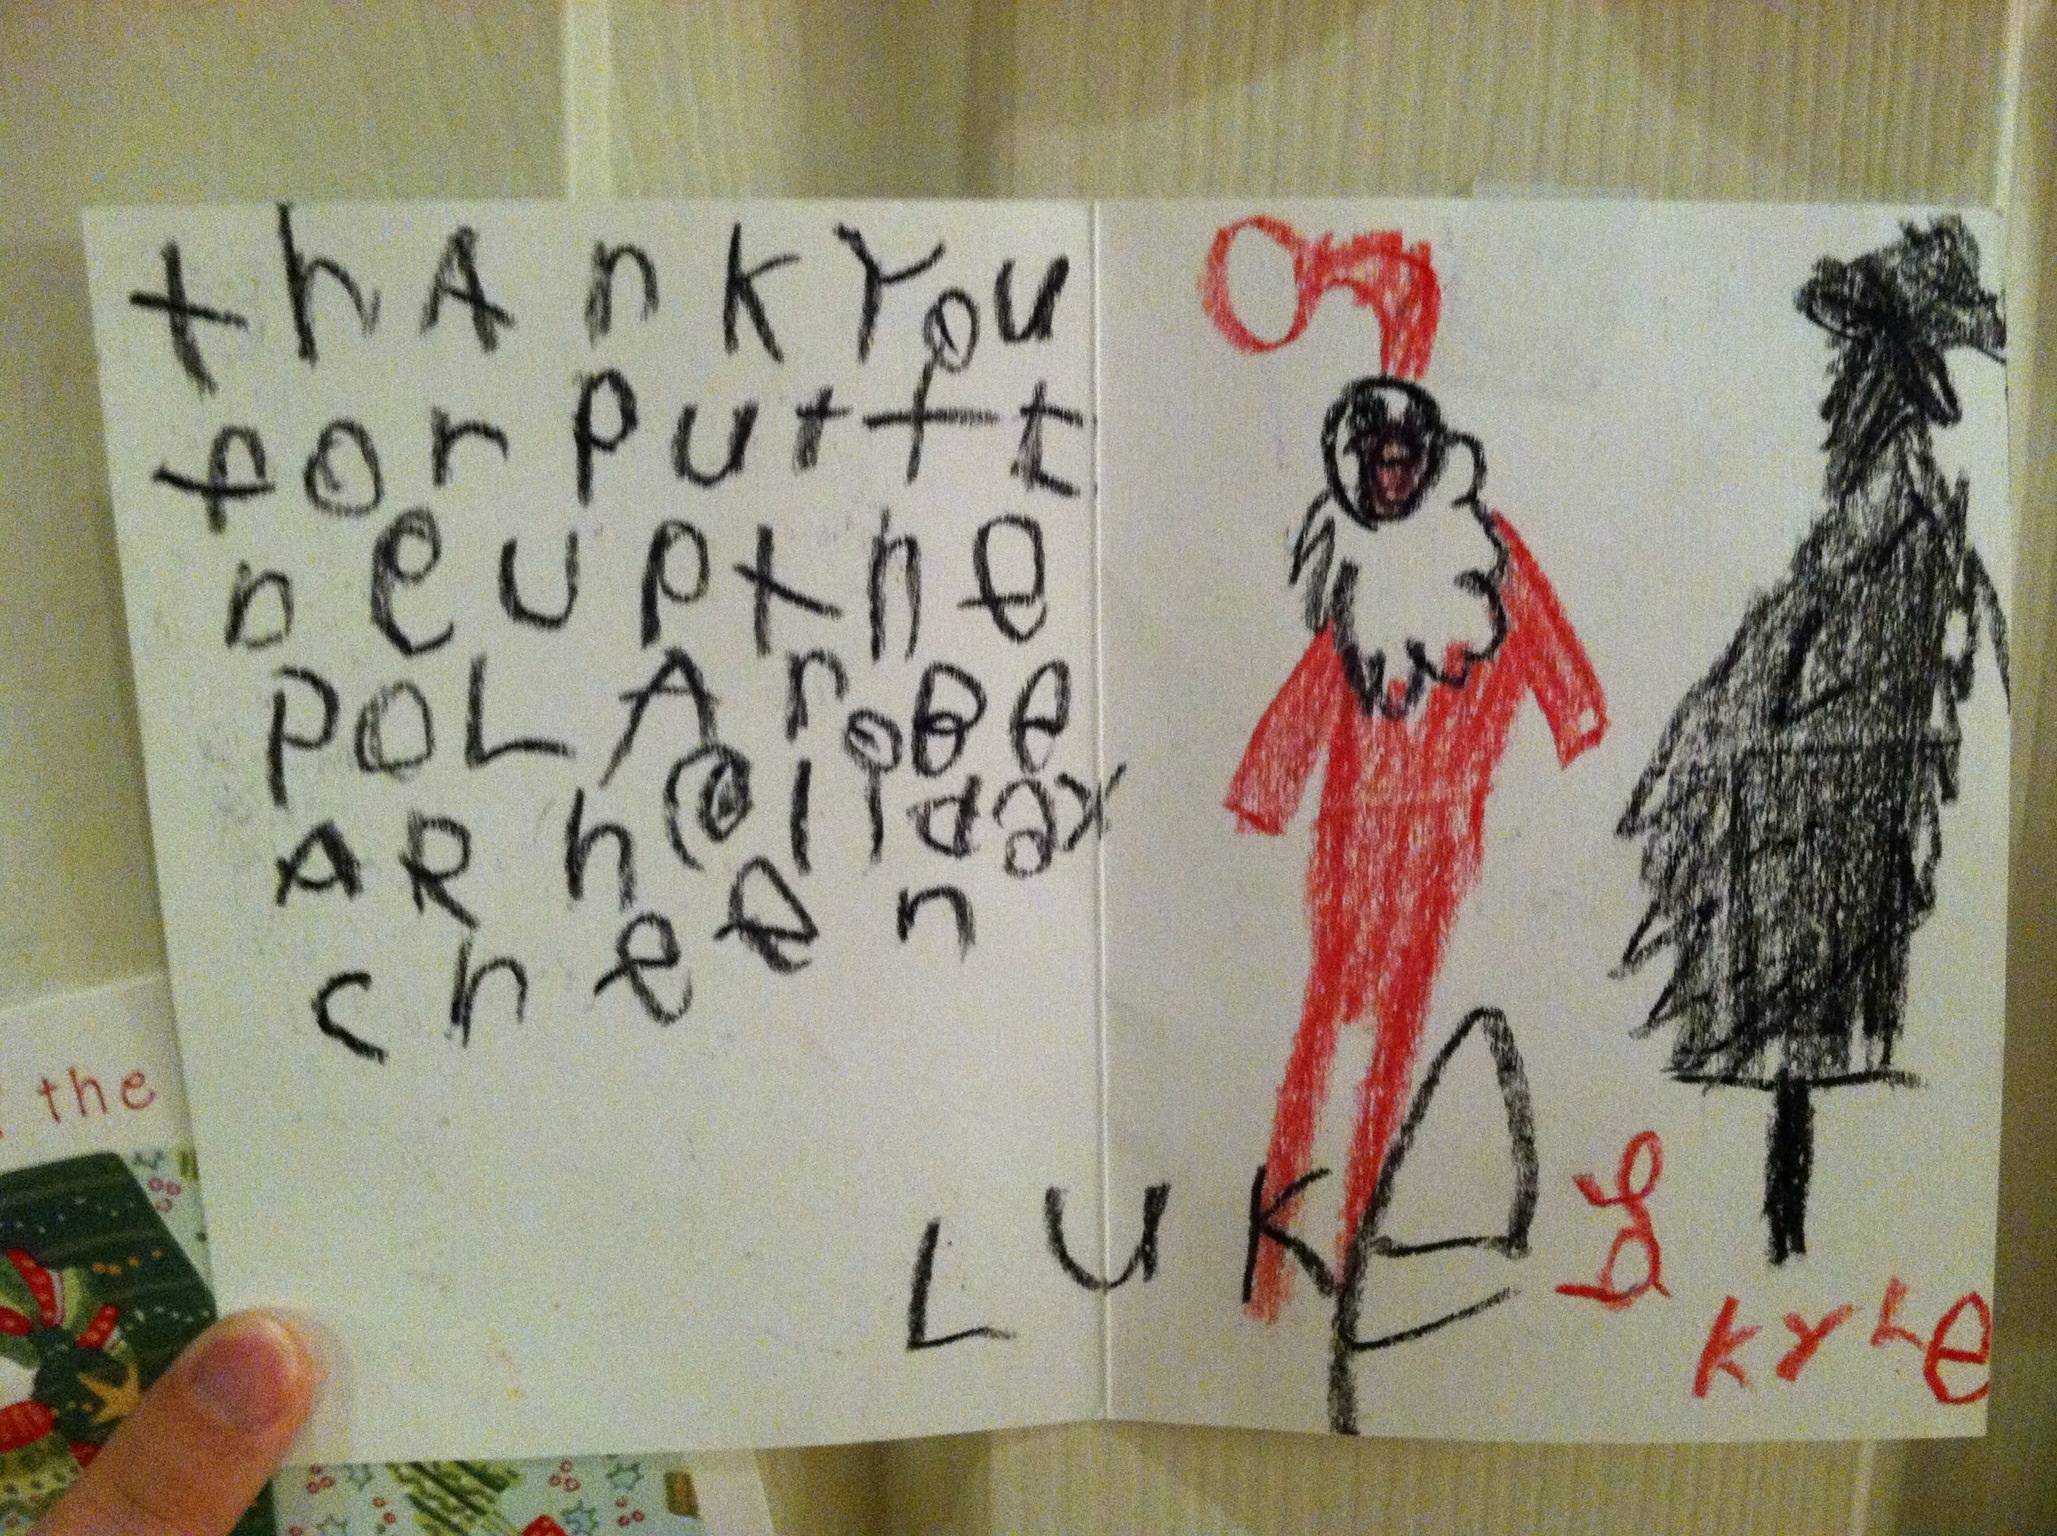 thAnk You
for puttt
ne up the
POLAr Be
AR holiday
cheer
LUKE & KYLE
the